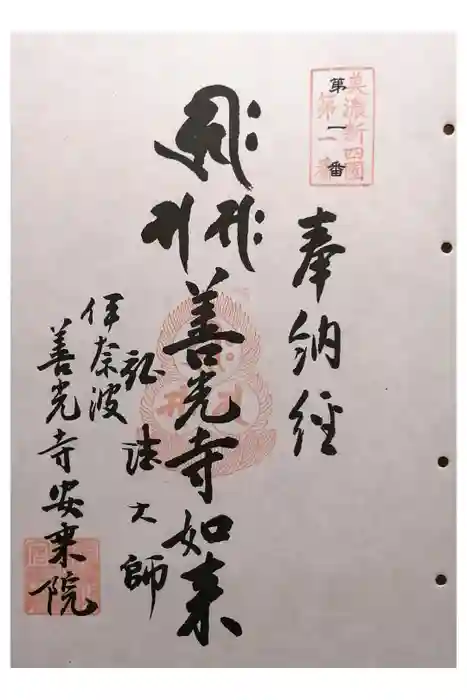 美濃新四国
第一番
奉納経
善光寺如来
弘法大師
伊奈波
善光寺安楽院